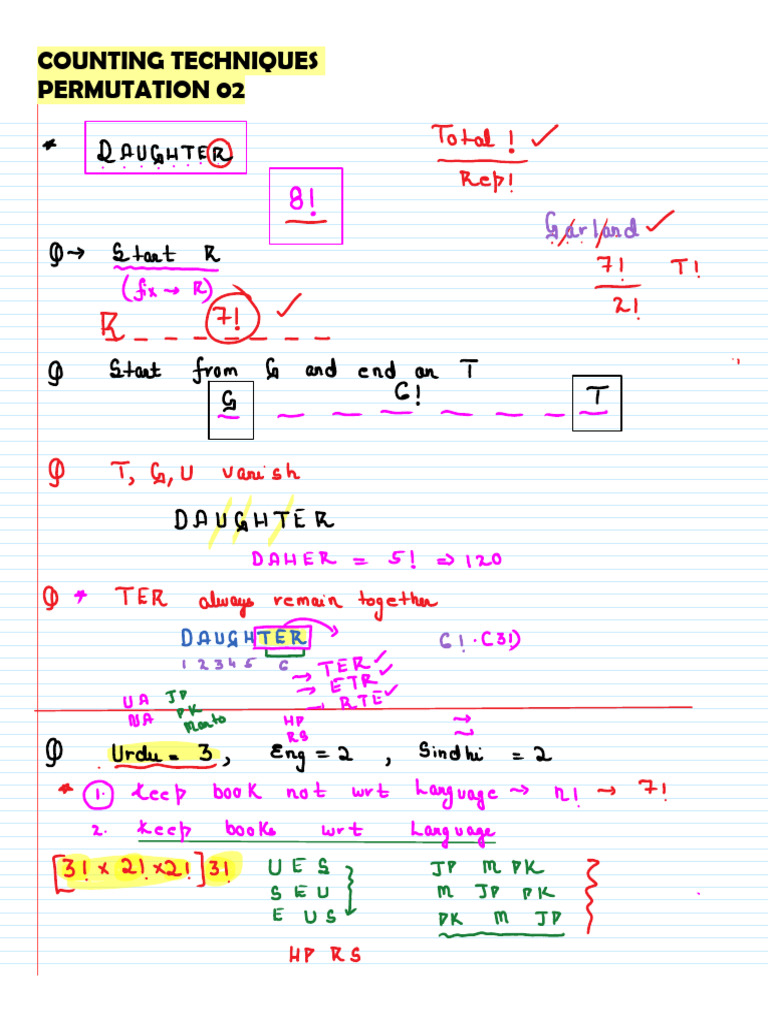 COUNTING TECHNIQUES
PERMUTATION 02
* DAUGHTER
Total! ✓
Rep!
8!
Garland ✓
7! T!
2!
Q → Start R
(fix → R)
R _ _ _ _ _ _ _ 7! ✓
Q Start from G and end on T
G 6! T
Q T, G, U vanish
DAUGHTER
DAHER = 5! ⇒ 120
Q * TER always remain together
DAUGHTER 6! · (3!)
1 2 3 4 5 6
→ TER ✓
→ ETR ✓
→ RTE ✓
UA JP
NA PK
Manto
HP
RS
Q Urdu = 3, Eng = 2, Sindhi = 2
* 1. Keep book not wrt language → n! → 7!
2. Keep books wrt Language
[3! × 2! × 2!] 3!
U E S
S E U
E U S
JP M PK
M JP PK
PK M JP
HP RS